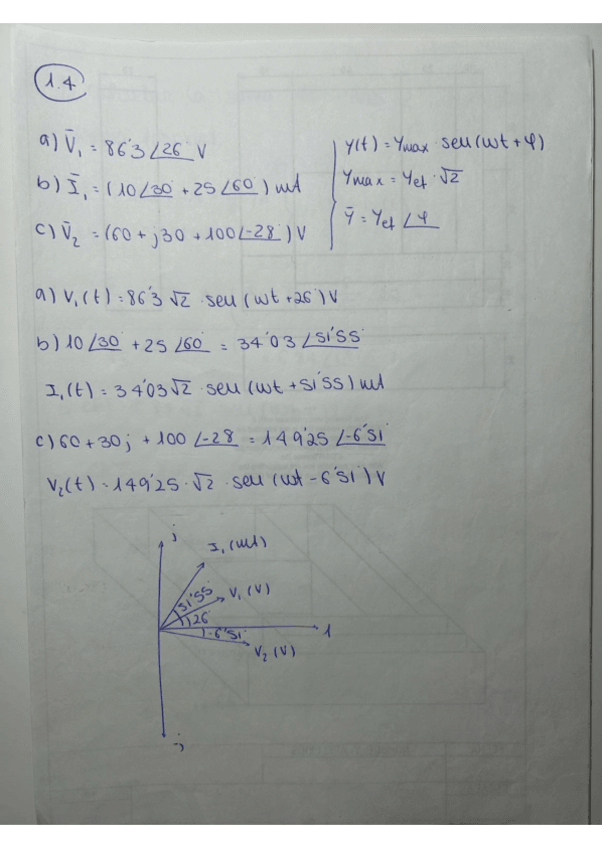 1.4
a) V̄₁ = 86'3 ∠26° V
b) Ī₁ = (10∠30° + 25∠60°) mA
c) V̄₂ = (60 + j30 + 100∠-28°) V
y(t) = Ymax · sen(wt + φ)
Ymax = Yef · √2
Ȳ = Yef ∠φ
a) V₁(t) = 86'3 √2 · sen(wt + 26°) V
b) 10∠30° + 25∠60° = 34'03 ∠51'55°
I₁(t) = 34'03 √2 · sen(wt + 51'55°) mA
c) 60 + 30j + 100∠-28° = 149'25 ∠-6'51°
V₂(t) = 149'25 · √2 · sen(wt - 6'51°) V
j
I₁ (mA)
51'55°
V₁ (V)
26°
-6'51°
1
V₂ (V)
-j